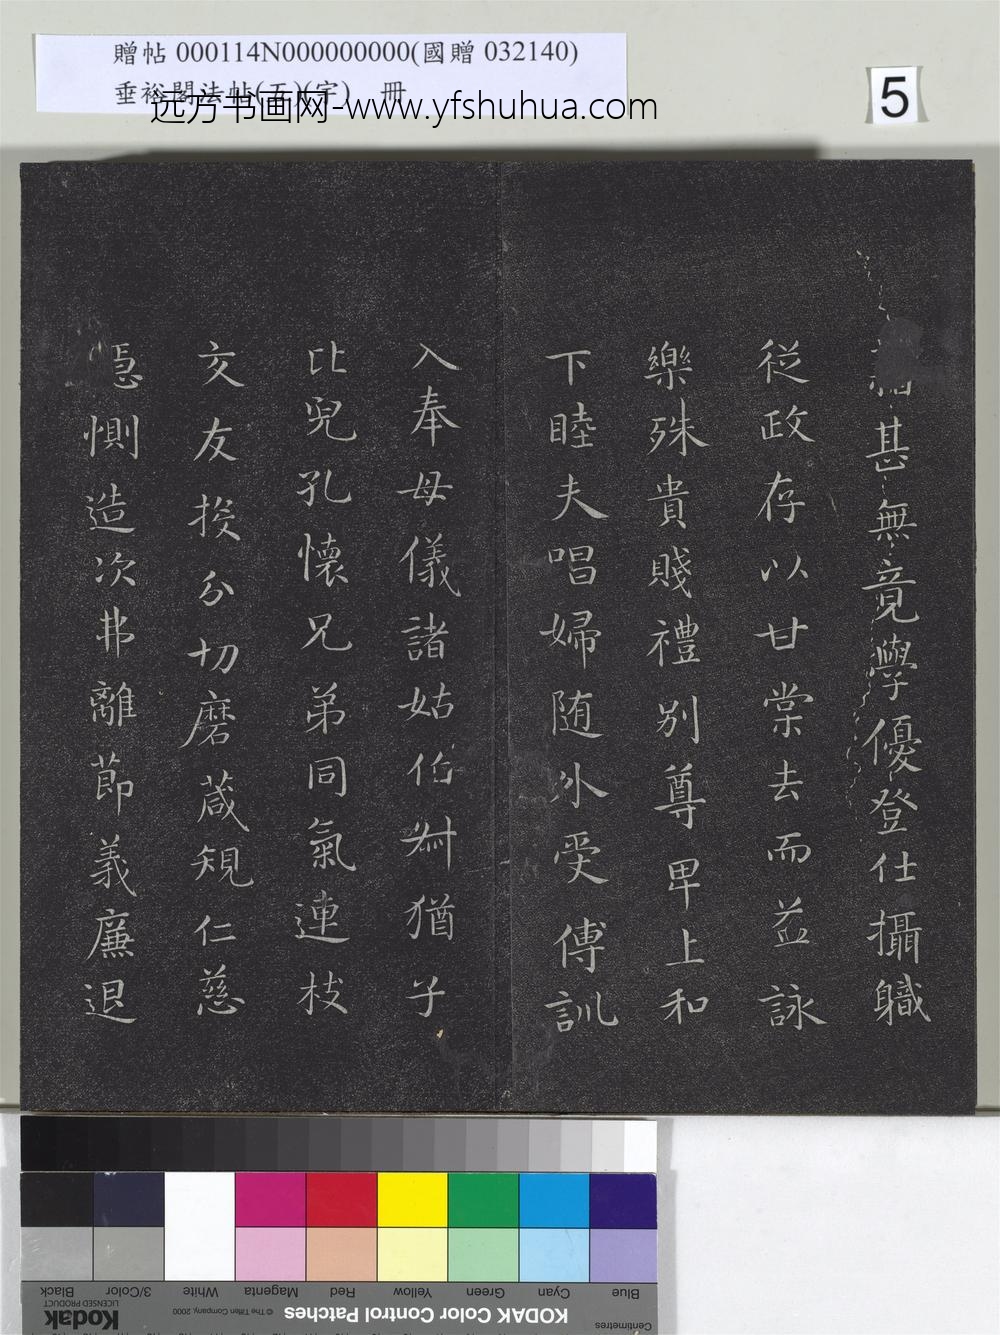 贈帖 000114N000000000(國贈 032140)
垂裕閣法帖(五)(字) 冊
远方书画网-www.yfshuhua.com
5
藉甚無竟學優登仕攝職
從政存以甘棠去而益詠
樂殊貴賤禮別尊卑上和
下睦夫唱婦随外受傅訓
入奉母儀諸姑伯叔猶子
比兒孔懷兄弟同氣連枝
交友投分切磨葴規仁慈
隱惻造次弗離節義廉退
Blue Cyan Green Yellow Red Magenta White 3/Color Black
Centimetres KODAK Color Control Patches © The Tiffen Company, 2000 Kodak LICENSED PRODUCT